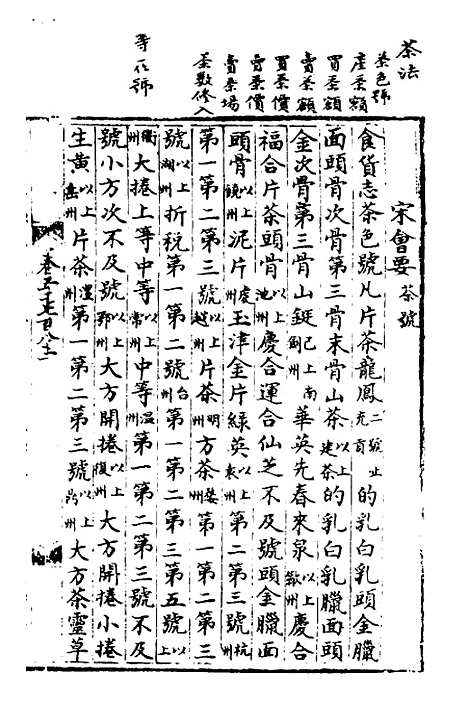 茶法
茶色號
產茶額
買茶額
賣茶額
買茶價
賣茶價
賣茶場
茶數修入
等在號
宋會要 茶號
食貨志茶色號凡片茶龍鳳二號止充貢的乳白乳頭金臘
面頭骨次骨第三骨末骨山茶以上建茶的乳白乳臘面頭
金次骨第三骨山鋌已上南劍州華英先春來泉以上歙州慶合
福合片茶頭骨以上池州慶合運合仙芝不及號頭金臘面
頭骨以上饒州泥片虔州玉津金片綠英以上袁州第二第三號杭州
第一第二第三號以上越州片茶明州方茶婺州第一第二第三
號以上湖州折稅第一第二號台州第一第二第三第五號以上
衢州大捲上等中等以上常州中等溫州第一第二第三號不及
號小方次不及號以上鄂州大方開捲以上復州大方開捲小捲
生黃以上岳州片茶澧州第一第二第三號以上州大方茶靈草